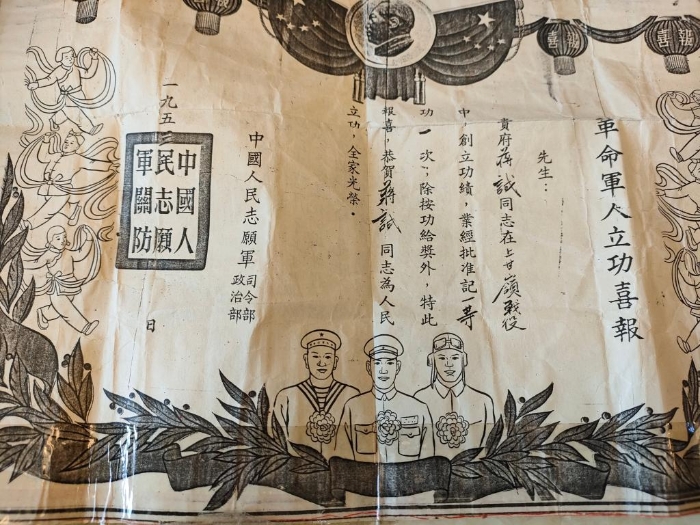 喜報
喜報
革命軍人立功喜報
先生：
貴府蔣誠同志在上甘嶺戰役
中，創立功績，業經批准記一等
功一次，除按功給獎外，特此
報喜，恭賀蔣誠同志為人民
立功，全家光榮。
中國人民志願軍司令部
政治部
中國人
民志願
軍關防
一九五三
日